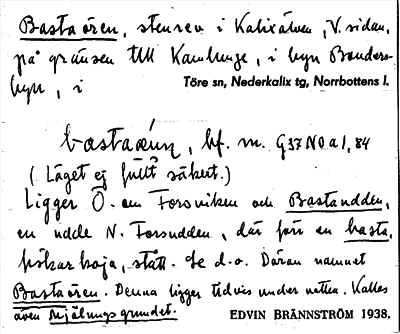 Bastaören, stenrev i Kalixälven, V. sidan,
på gränsen till Kamlunge, i byn Bondersbyn, i
Töre sn, Nederkalix tg, Norrbottens l.
bf. m. G37NOa1,84
(Läget ej fullt säkert.)
Ligger Ö. om Forsviken och Bastaudden,
en udde N. Forsudden, där förr en basta,
pörkokoja, stått. Se d.o. Därav namnet
Bastaören. Denna ligger tidvis under vatten. Kallas
även Mjälnugsgrundet.
EDVIN BRÄNNSTRÖM 1938.